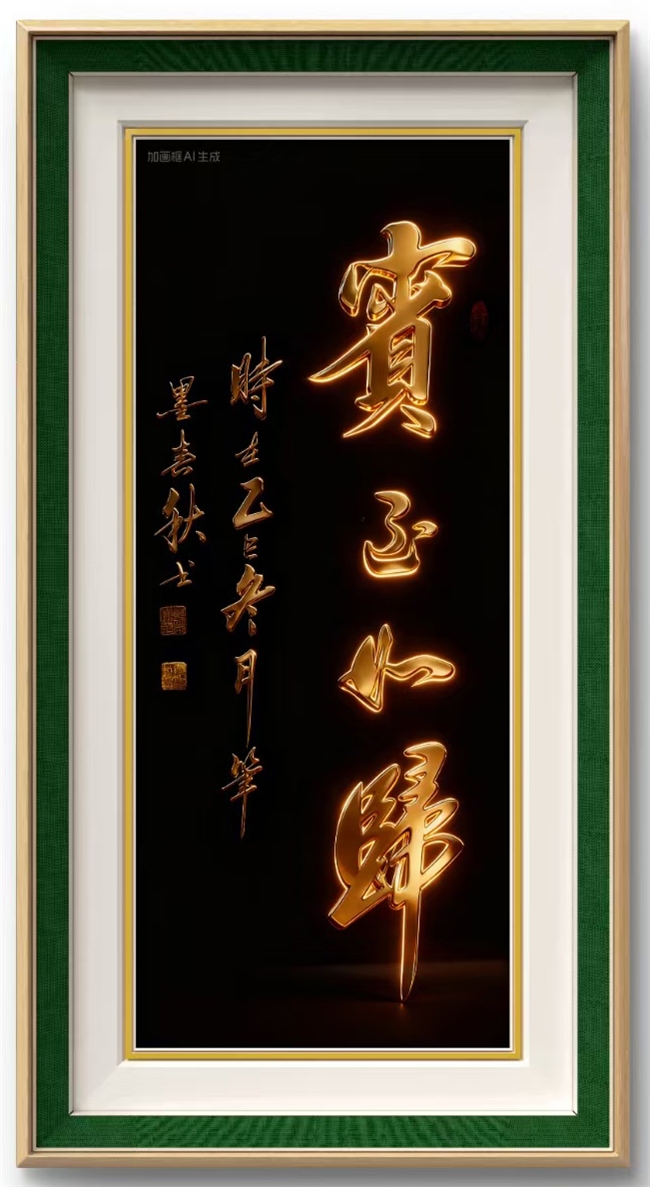 加画框AI生成
賓至如歸
時在乙巳冬月筆
墨春秋書